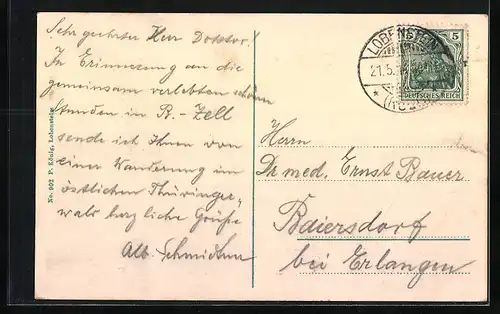 Sehr geehrter Herr Doktor!
In Erinnerung an die
gemeinsam verlebten schönen
Stunden in R.-Zell
sende ich Ihnen von
einer Wanderung im
östlichen Thüringer-
wald herzliche Grüße
Alb.
No. 902 P. König, Lobenstein
LOBENSTEIN
21.5.
5
DEUTSCHES REICH
Herrn
Dr med. Ernst Bauer
Baiersdorf
bei Erlangen